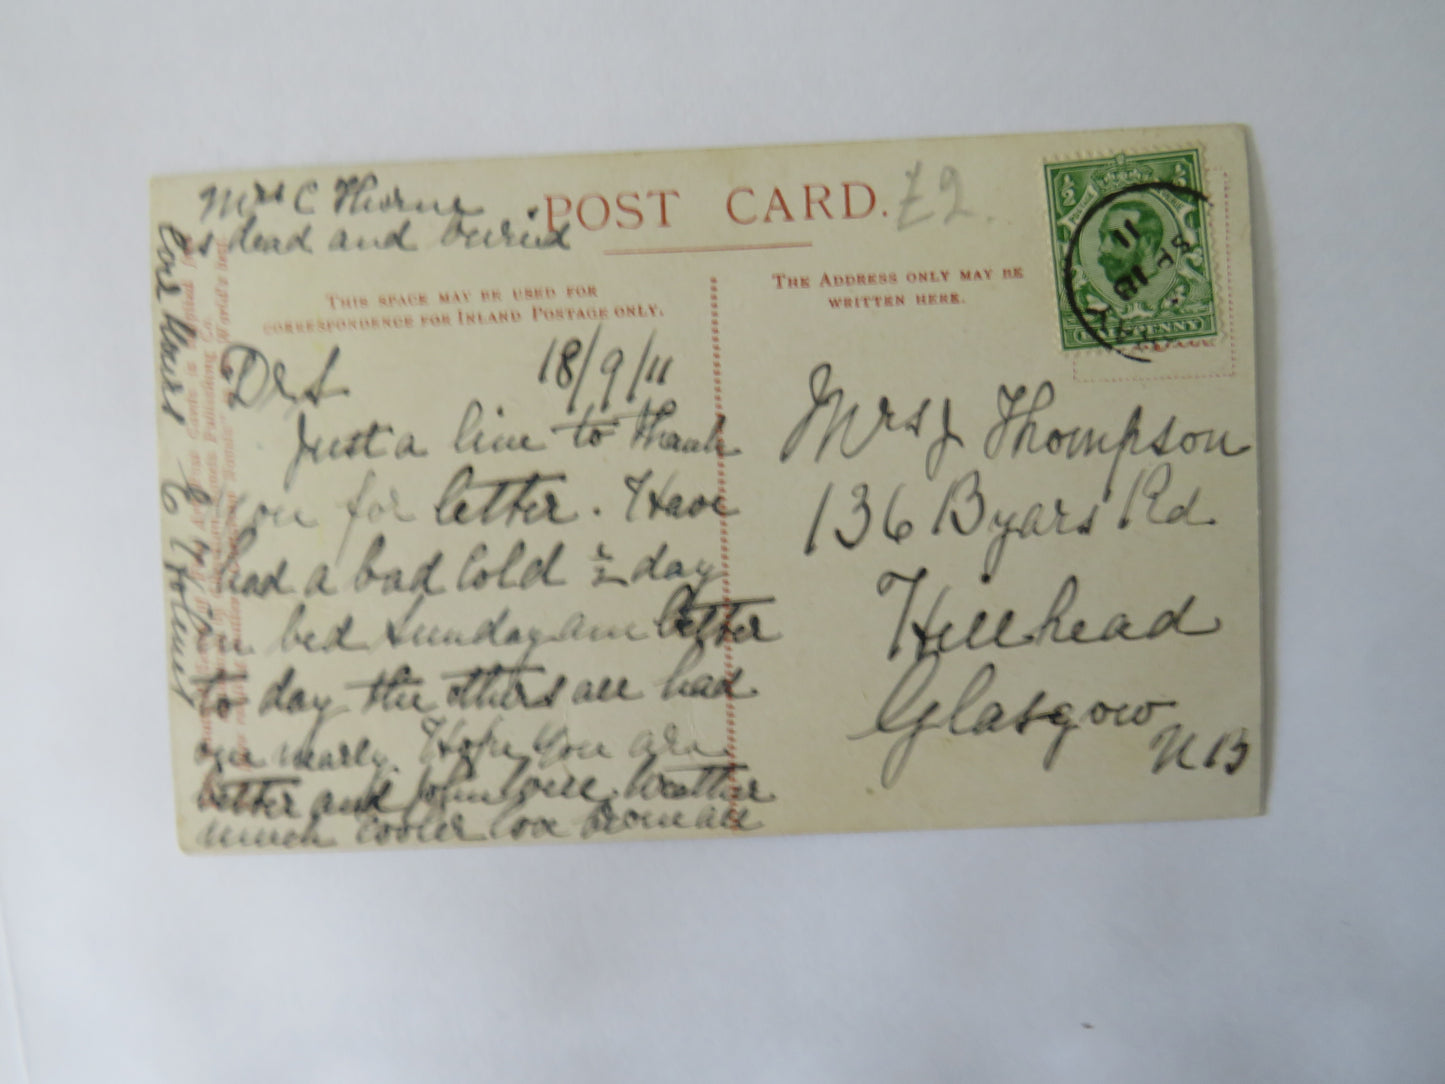 Mrs C Thorne
is dead and buried
POST CARD.
£2
THIS SPACE MAY BE USED FOR
CORRESPONDENCE FOR INLAND POSTAGE ONLY.
THE ADDRESS ONLY MAY BE
WRITTEN HERE.
Dr S 18/9/11
Just a line to thank
you for letter. Have
had a bad Cold ½ day
in bed Sunday am better
to day the others all had
one nearly. Hope you are
better and John well. Weather
much cooler love from all
Mrs J Thompson
136 Byars Rd
Hillhead
Glasgow
N B
½ ½
POSTAGE
HALFPENNY
SP 18
11